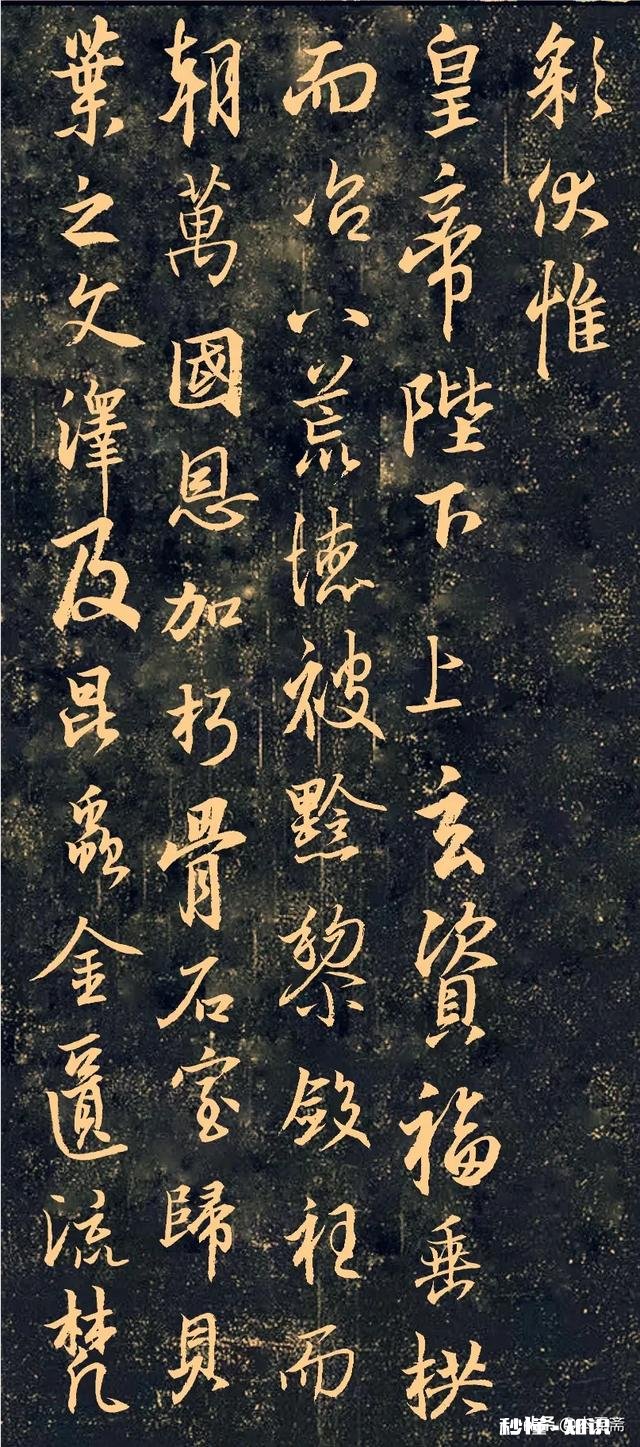 彩伏惟
皇帝陛下 上玄資福垂拱
而治八荒德被黔黎斂衽而
朝萬國恩加朽骨石室歸貝
葉之文澤及昆蟲金匱流梵
秒懂-知识